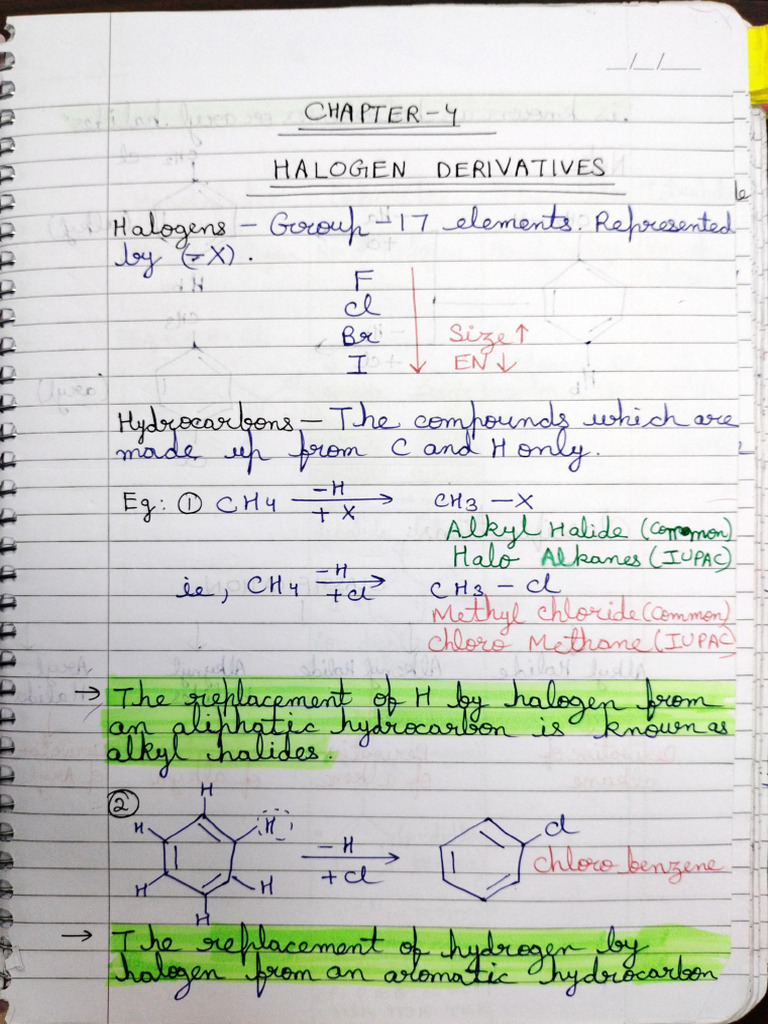 __/__/____
CHAPTER-4
HALOGEN DERIVATIVES
Halogens - Group-17 elements. Represented
by (-X).
F
Cl
Br Size↑
I EN↓
Hydrocarbons - The compounds which are
made up from C and H only.
Eg: ① CH4 -H + X → CH3 - X
Alkyl Halide (Common)
Halo Alkanes (IUPAC)
ie, CH4 -H +Cl → CH3 - Cl
Methyl chloride (common)
Chloro Methane (IUPAC)
→ The replacement of H by halogen from
an aliphatic hydrocarbon is known as
alkyl halides.
② H H H H H H -H +Cl → Cl chloro benzene
→ The replacement of hydrogen by
halogen from an aromatic hydrocarbon